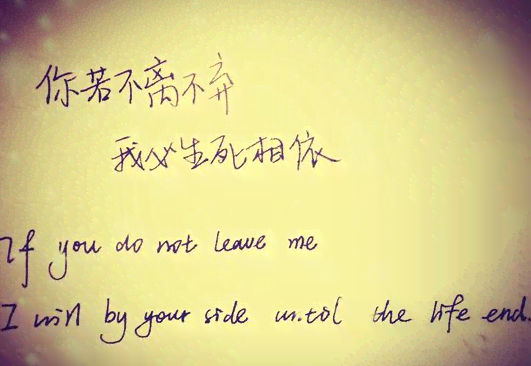 你若不离不弃
我必生死相依
If you do not leave me
I will by your side until the life end.